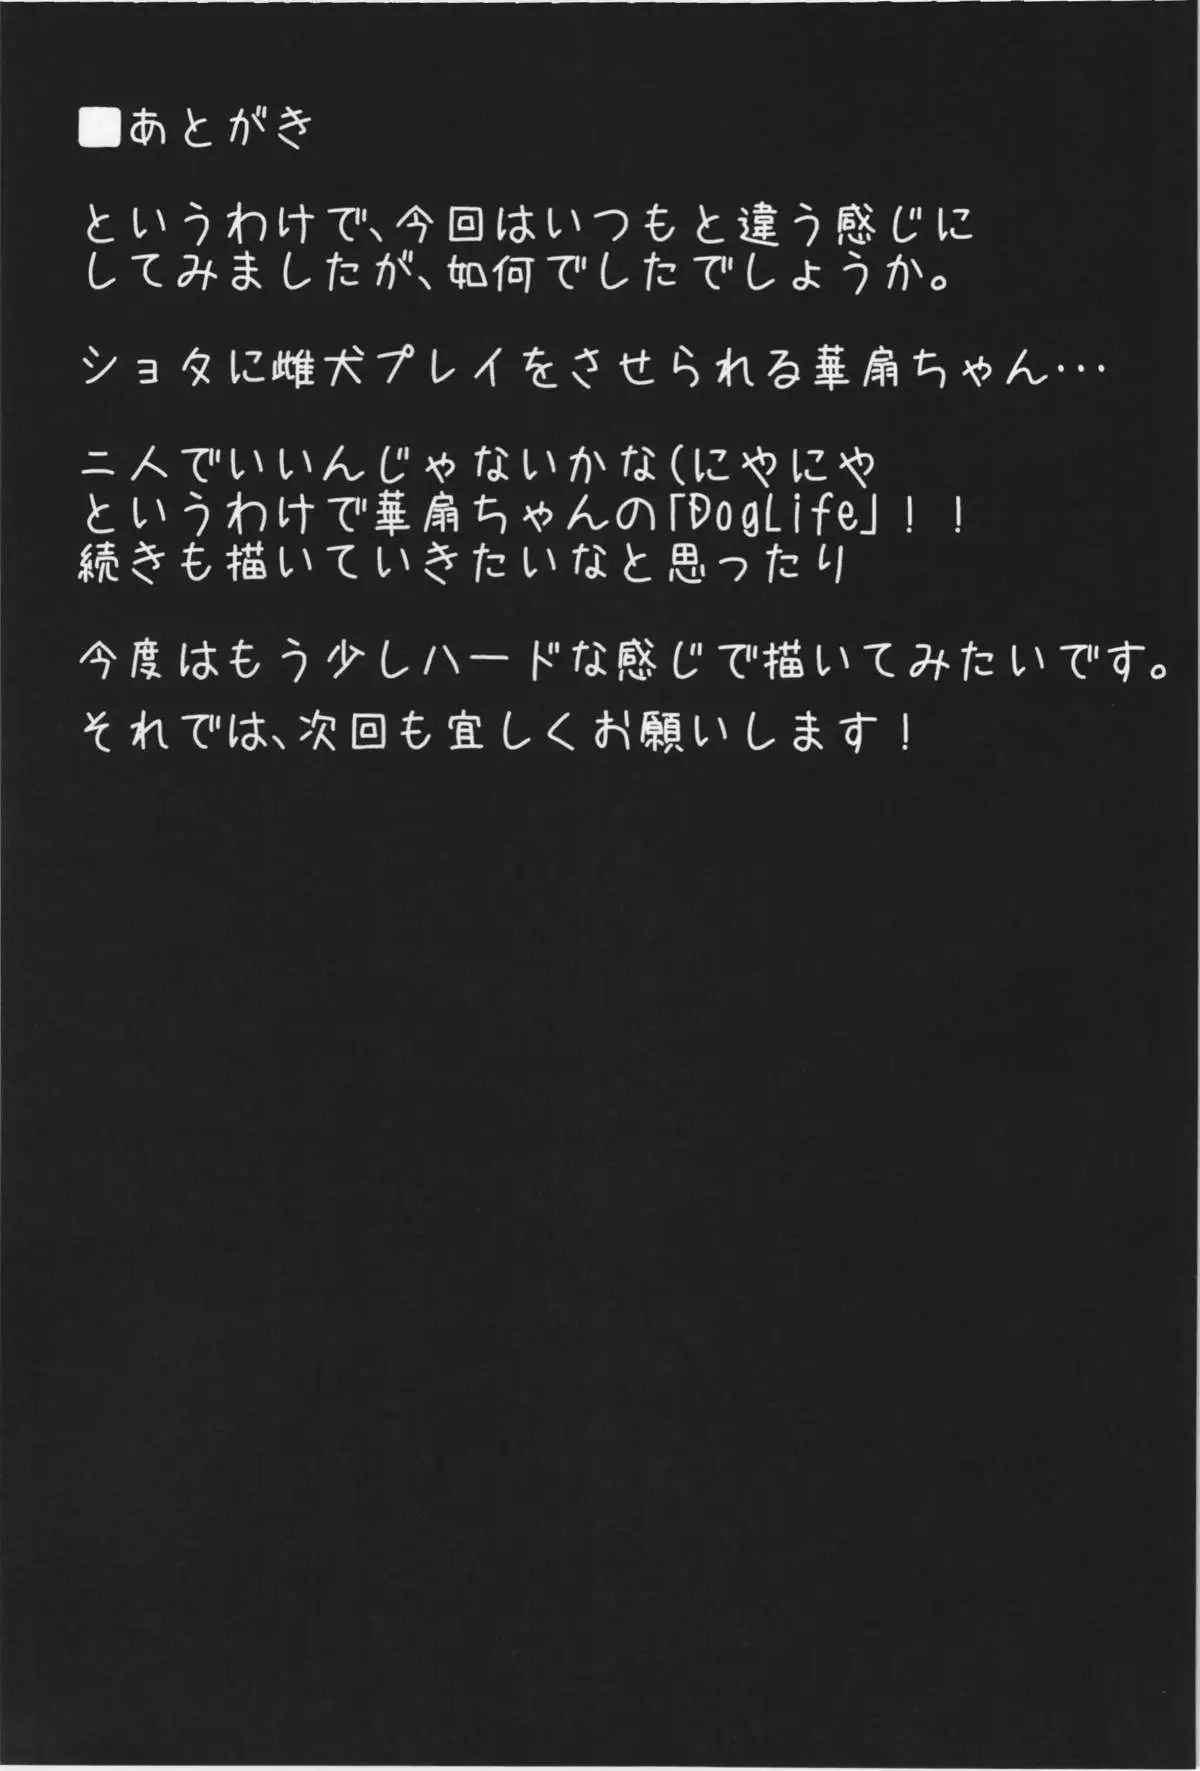 ■あとがき
というわけで、今回はいつもと違う感じに
してみましたが、如何でしたでしょうか。
ショタに雌犬プレイをさせられる華扇ちゃん…
二人でいいんじゃないかな(にやにや
というわけで華扇ちゃんの「DogLife」！！
続きも描いていきたいなと思ったり
今度はもう少しハードな感じで描いてみたいです。
それでは、次回も宜しくお願いします！